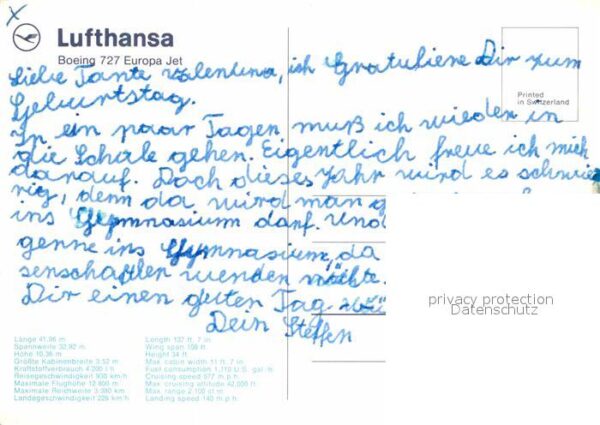 Lufthansa
Boeing 727 Europa Jet
Liebe Tante Valentina, ich Gratuliere Dir zum
Geburtstag.
In ein paar Tagen muß ich wieder in
die Schule gehen. Eigentlich freue ich mich
darauf. Doch dieses Jahr wird es schwie
rig, denn da wird man
ins Gymnasium darf. Und
genne ins Gymnasium, da
senschaftler werden möchte.
Dir einen guten Tag
Dein Steffen
Printed
in Switzerland
privacy protection
Datenschutz
Länge 41,96 m
Spannweite 32,92 m
Höhe 10,36 m
Größte Kabinenbreite 3,52 m
Kraftstoffverbrauch 4 200 l/h
Reisegeschwindigkeit 930 km/h
Maximale Flughöhe 12 800 m
Maximale Reichweite 3 380 km
Landegeschwindigkeit 226 km/h
Length 137 ft. 7 in
Wing span 108 ft.
Height 34 ft
Max. cabin width 11 ft. 7 in
Fuel consumption 1,110 U.S. gal./h
Cruising speed 577 m.p.h.
Max. cruising altitude 42,000 ft.
Max. range 2,100 st.m
Landing speed 140 m.p.h